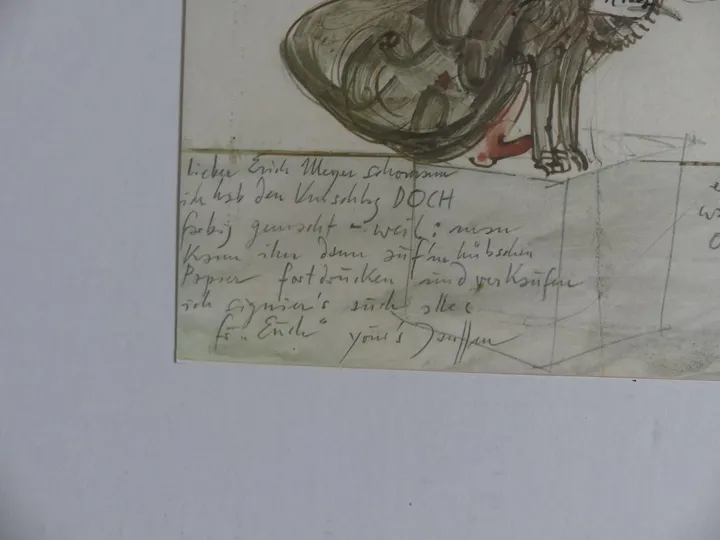 lieber Erich Meyer schomann
ich hab den Umschlag DOCH
farbig gemacht - weil: man
Kann ihn dann auf'm hübschen
Papier fortdrucken und verkaufen
ich signier's auch alles
für „Euch" your's Janssen